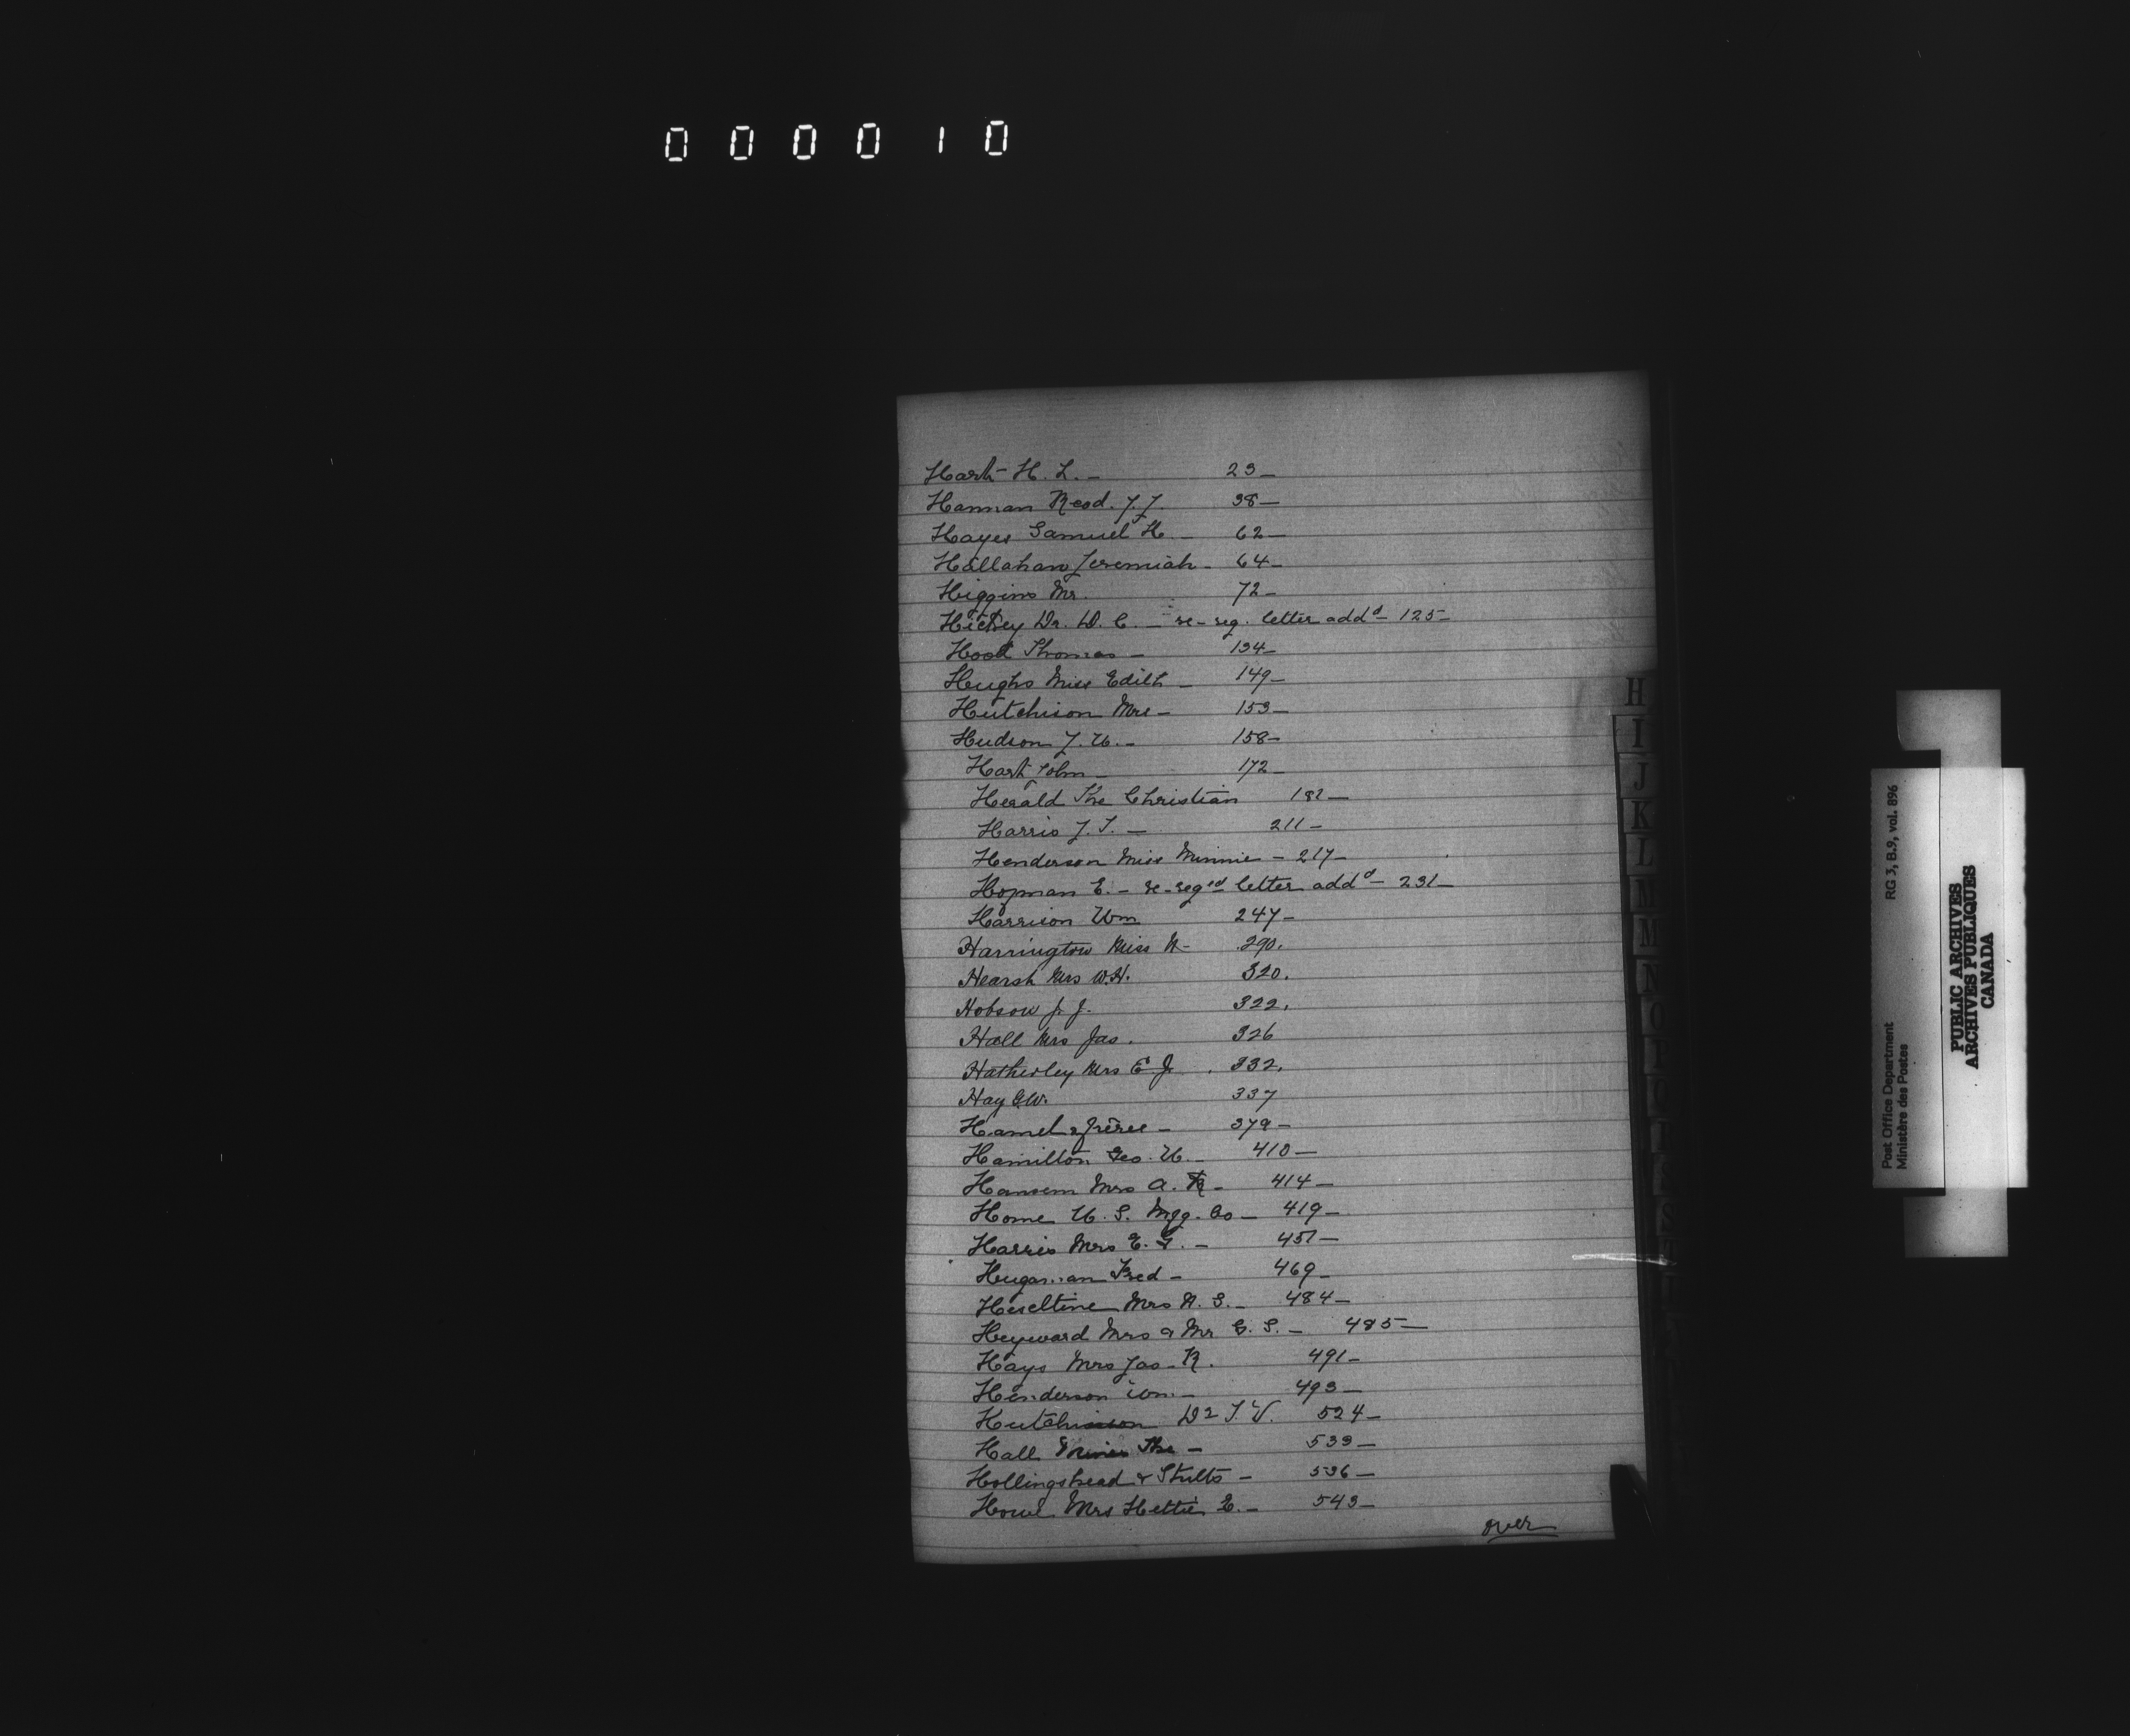 000010
Hart H. L. - 23-
Hannan Read. J. J. 38-
Hayes Samuel H. - 62-
Hallahan Jeremiah - 64-
Higgins Mr. 72-
Hickey Dr. D. C. - re-reg. letter addd - 125-
Hood Thomas - 134-
Hughs Miss Edith - 149-
Hutchison Mrs - 153-
Hudson J. H. - 158-
Hart John - 172-
Herald The Christian 182-
Harris J. T. - 211-
Henderson Miss Minnie - 217-
Hopman E. - re-reged letter addd - 231-
Harrison Wm 247-
Harrington Miss N - 290.
Hearsh Mrs W.H. 320.
Hobson J. J. 322.
Hall Mrs Jas. 326
Hatherley Mrs E J. 332.
Hay G.W. 337
Hamel & freres - 379-
Hamilton Geo. H. - 410-
Hansem Mrs A. R - 414-
Home U. S. Mfg. Co - 419-
Harris Mrs E. G. - 451-
Hugaman Fred - 469-
Heseltine Mrs A. S. - 484-
Heyward Mrs & Mr G. S. - 485-
Hays Mrs Jas. R. 491-
Henderson Wm. - 493-
Hutchison Dr T. V. 524-
Hall The - 533-
Hollingshead & Stults - 536-
Howe Mrs Hettie E. - 543-
over
H
I
J
K
L
M
M
N
O
Post Office Department RG 3, B.9, vol. 896
Ministère des Postes
PUBLIC ARCHIVES
ARCHIVES PUBLIQUES
CANADA